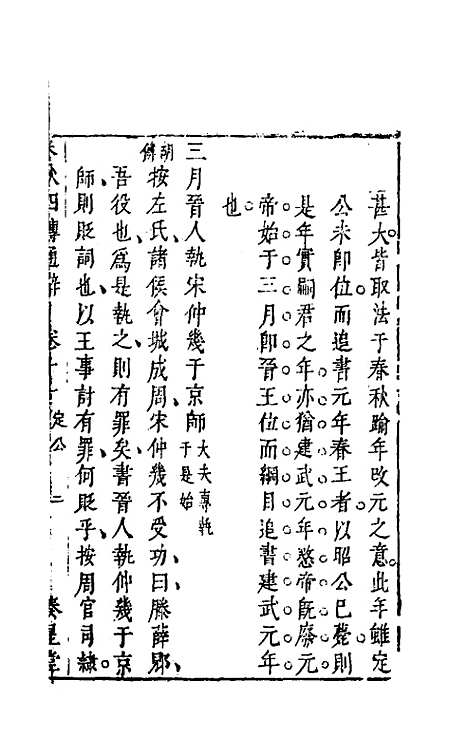 甚大皆取法于春秋踰年改元之意此年雖定
公未即位而追書元年春王者以昭公已薨則
是年實嗣君之年亦猶建武元年愍帝既廢元
帝始于三月即晉王位而綱目追書建武元年
也
三月晉人執宋仲幾于京師大夫專執于是始
胡傳按左氏諸侯會城成周宋仲幾不受功曰滕薛郳
吾役也爲是執之則有罪矣書晉人執仲幾于京
師則貶詞也以王事討有罪何貶乎按周官司隸
春秋四傳通辭 卷十 定公